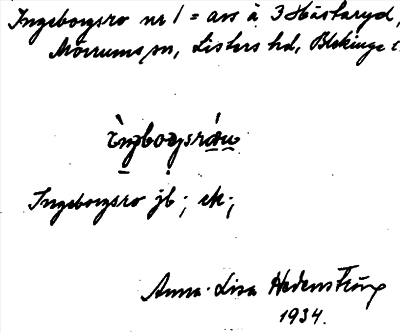 Ingeborgsro nr 1 = avs å 3 Hästaryd,
Mörrums sn, Listers hd, Blekinge l.
Ingeborgsro jb; ek;
Anna-Lisa Hedenström
1934.